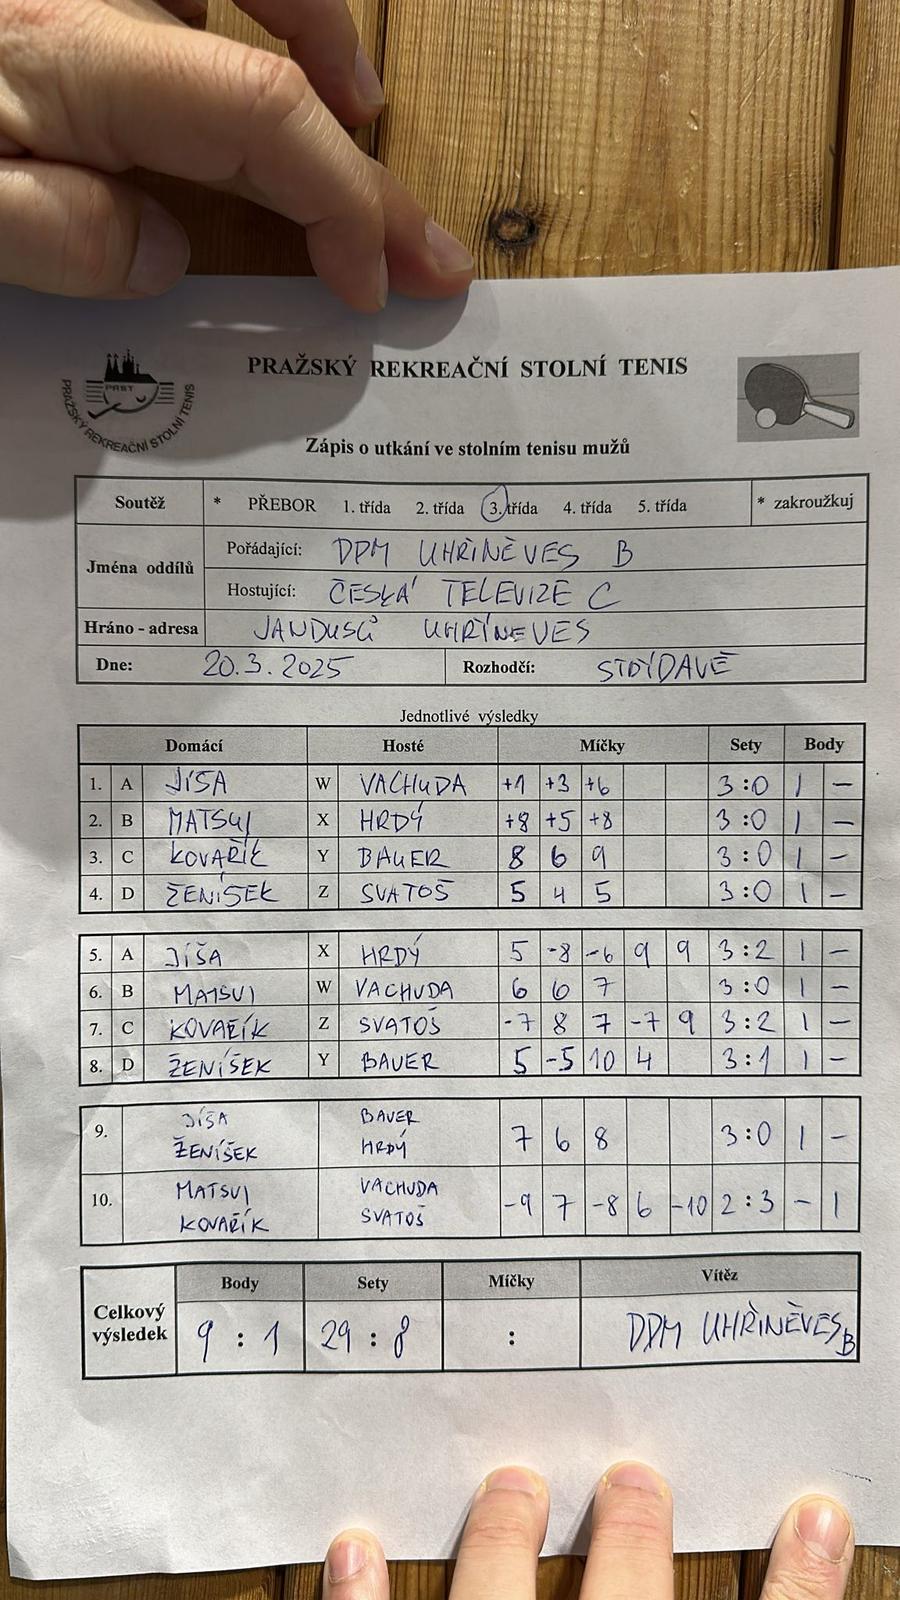 PRAŽSKÝ REKREAČNÍ STOLNÍ TENIS
PRST
PRAŽSKÝ REKREAČNÍ STOLNÍ TENIS
Zápis o utkání ve stolním tenisu mužů
Soutěž * PŘEBOR 1. třída 2. třída 3. třída 4. třída 5. třída * zakroužkuj
Jména oddílů
Pořádající: DPM UHŘÍNĚVES B
Hostující: ČESKÁ TELEVIZE C
Hráno - adresa JANDUSŮ UHŘÍNEVES
Dne: 20.3.2025 Rozhodčí: STŘÍDAVĚ
Jednotlivé výsledky
Domácí Hosté Míčky Sety Body
1. A JÍŠA W VACHUDA +1 +3 +6 3:0 1 –
2. B MATSUI X HRDÝ +8 +5 +8 3:0 1 –
3. C KOVAŘÍK Y BAUER 8 6 9 3:0 1 –
4. D ŽENÍŠEK Z SVATOŠ 5 4 5 3:0 1 –
5. A JÍŠA X HRDÝ 5 -8 -6 9 9 3:2 1 –
6. B MATSUI W VACHUDA 6 6 7 3:0 1 –
7. C KOVAŘÍK Z SVATOŠ -7 8 7 -7 9 3:2 1 –
8. D ŽENÍŠEK Y BAUER 5 -5 10 4 3:1 1 –
9. JÍŠA BAUER
ŽENÍŠEK HRDÝ 7 6 8 3:0 1 –
10. MATSUI VACHUDA
KOVAŘÍK SVATOŠ -9 7 -8 6 -10 2:3 – 1
Celkový výsledek
Body Sety Míčky Vítěz
9 : 1 29 : 8 : DDM UHŘÍNĚVES B